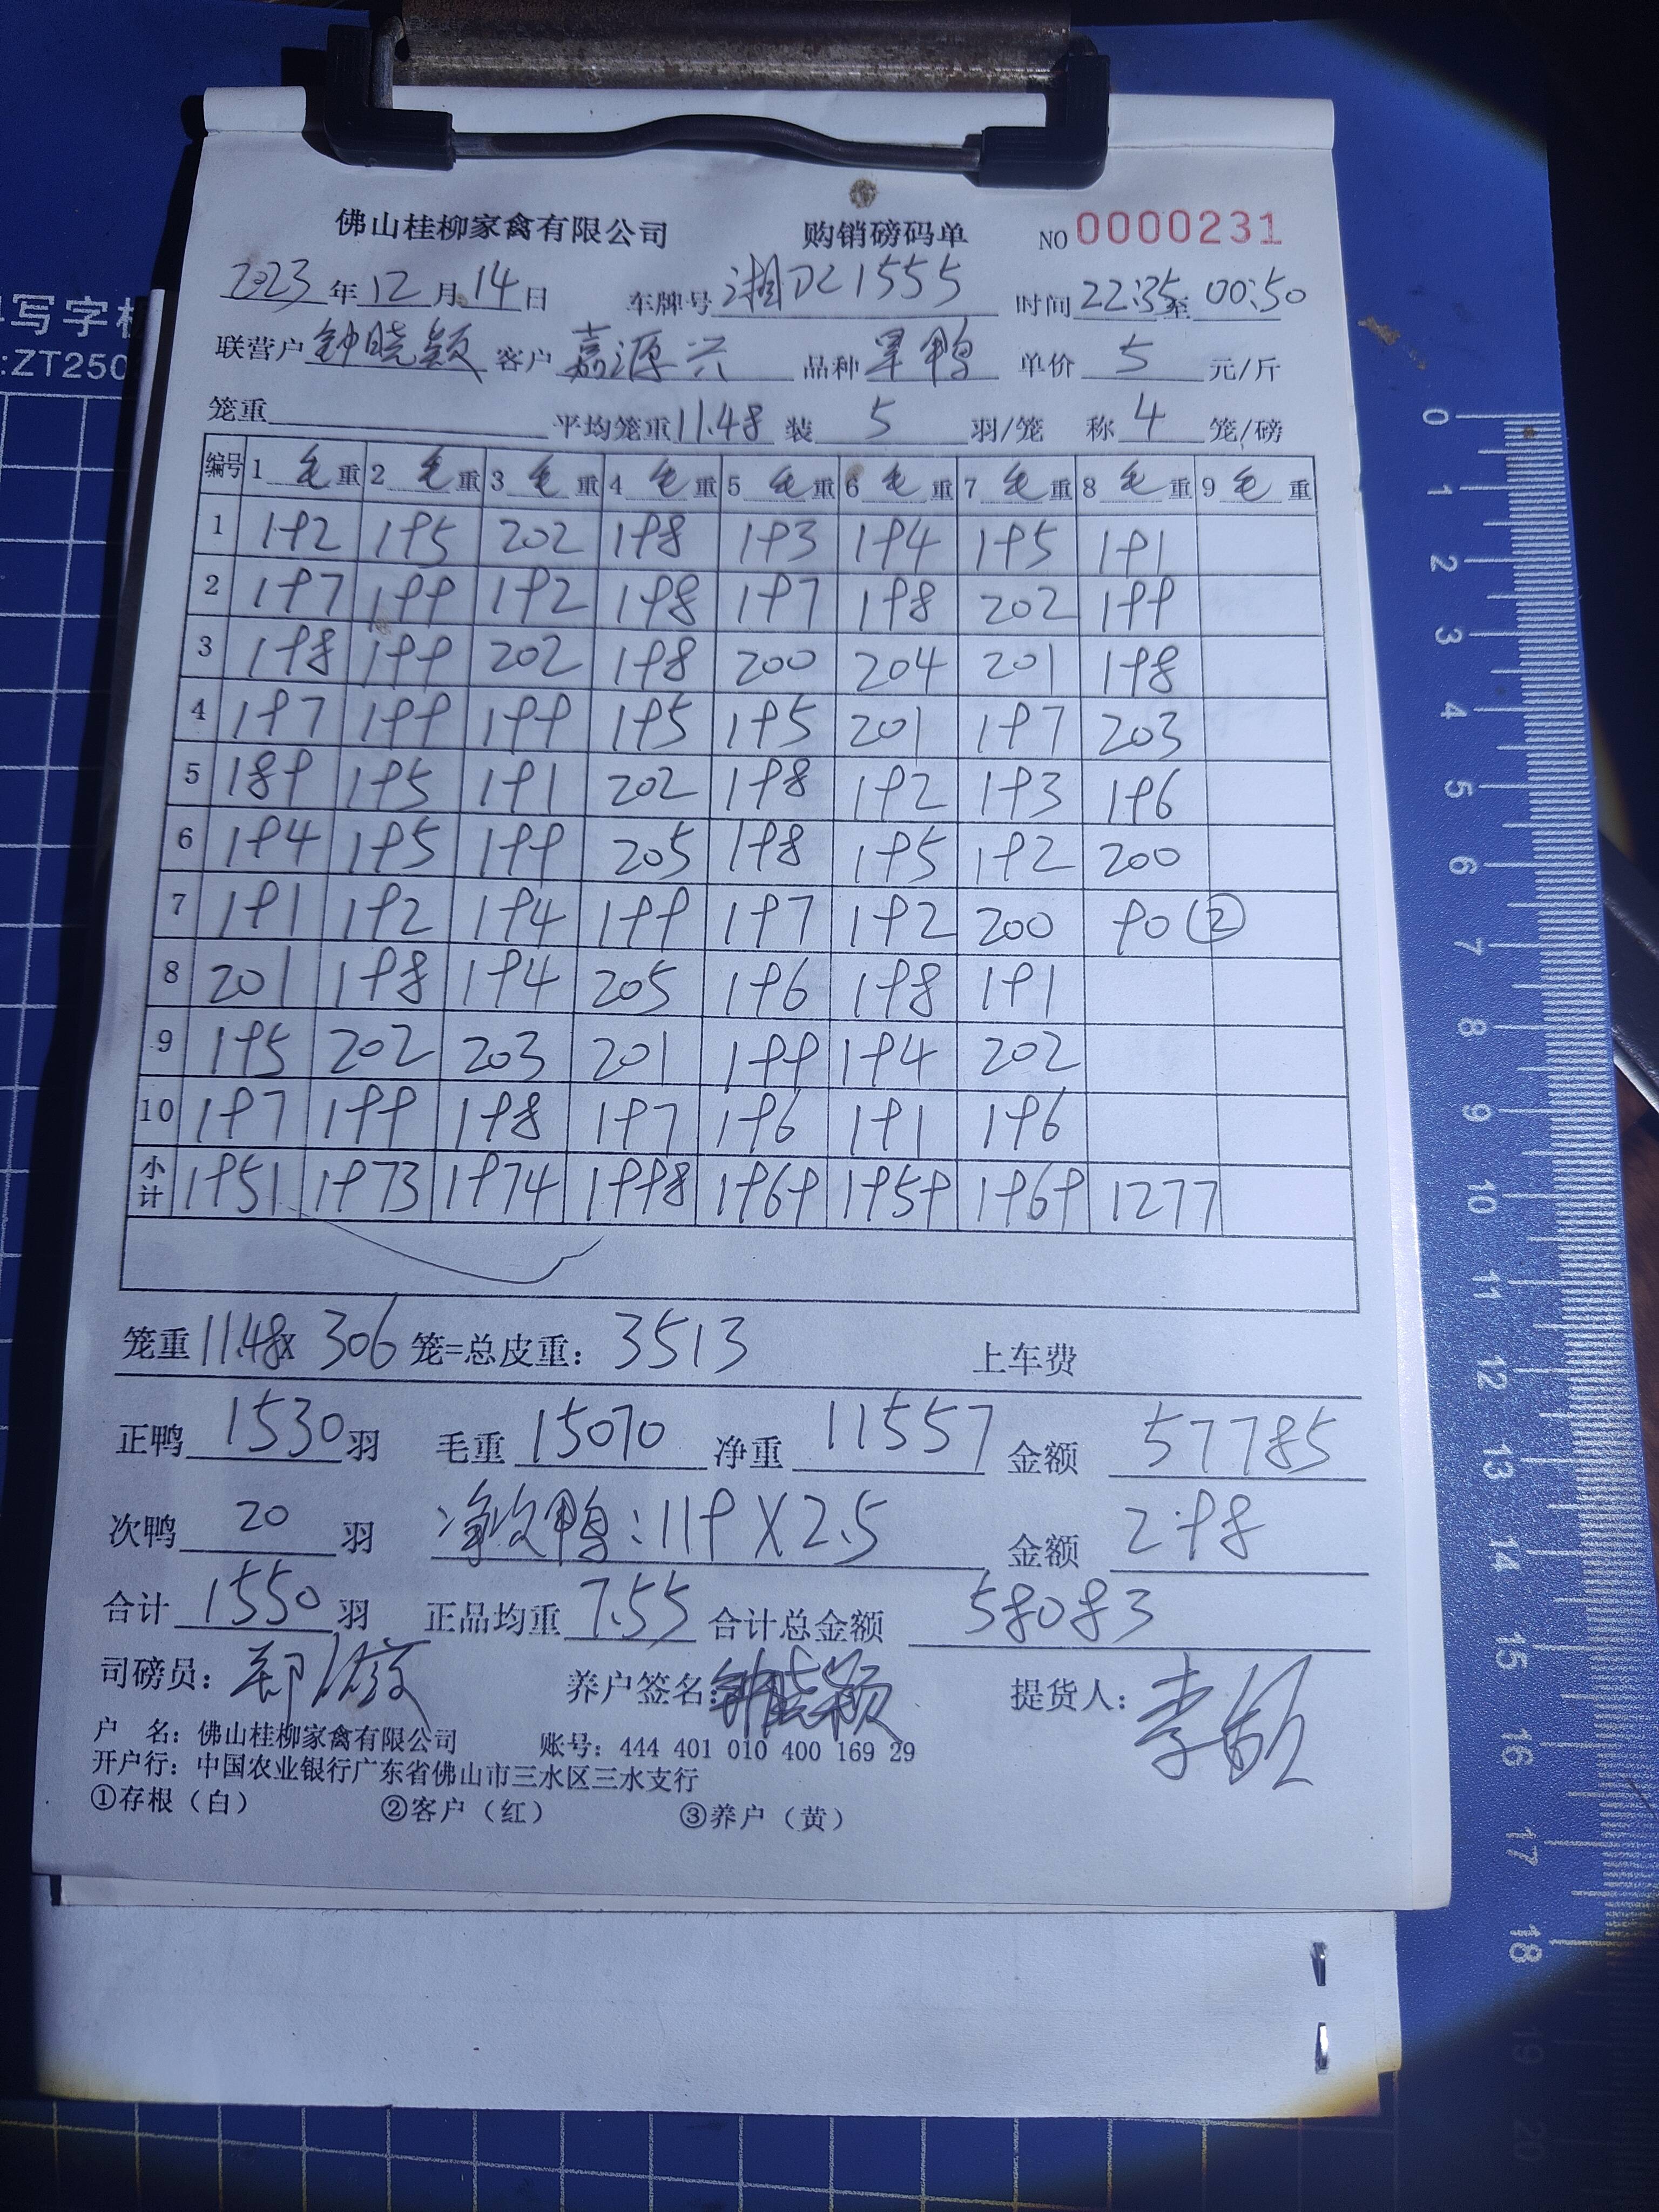 佛山桂柳家禽有限公司 购销磅码单 NO 0000231
2023年12月14日 车牌号 湘DL1555 时间22:35至00:50
联营户 钟晓颖 客户 嘉源兴 品种 旱鸭 单价 5 元/斤
笼重 平均笼重11.48 装 5 羽/笼 称 4 笼/磅
编号 1 毛重 2 毛重 3 毛重 4 毛重 5 毛重 6 毛重 7 毛重 8 毛重 9 毛重
1 192 195 202 198 193 194 195 191
2 197 199 192 198 197 198 202 199
3 198 199 202 198 200 204 201 198
4 197 199 199 195 195 201 197 203
5 189 195 191 202 198 192 193 196
6 194 195 199 205 198 195 192 200
7 191 192 194 199 197 192 200 90②
8 201 198 194 205 196 198 191
9 195 202 203 201 199 194 202
10 197 199 198 197 196 191 196
小计 1951 1973 1974 1998 1969 1959 1969 1277
笼重11.48x 306 笼=总皮重: 3513 上车费
正鸭 1530 羽 毛重 15070 净重 11557 金额 57785
次鸭 20 羽 净次鸭:119X2.5 金额 298
合计 1550 羽 正品均重 7.55 合计总金额 58083
司磅员: 养户签名: 钟晓颖 提货人: 李
户 名: 佛山桂柳家禽有限公司 账号: 444 401 010 400 169 29
开户行: 中国农业银行广东省佛山市三水区三水支行
①存根（白） ②客户（红） ③养户（黄）
写字板
:ZT250
0 1 2 3 4 5 6 7 8 9 10 11 12 13 14 15 16 17 18 19 20